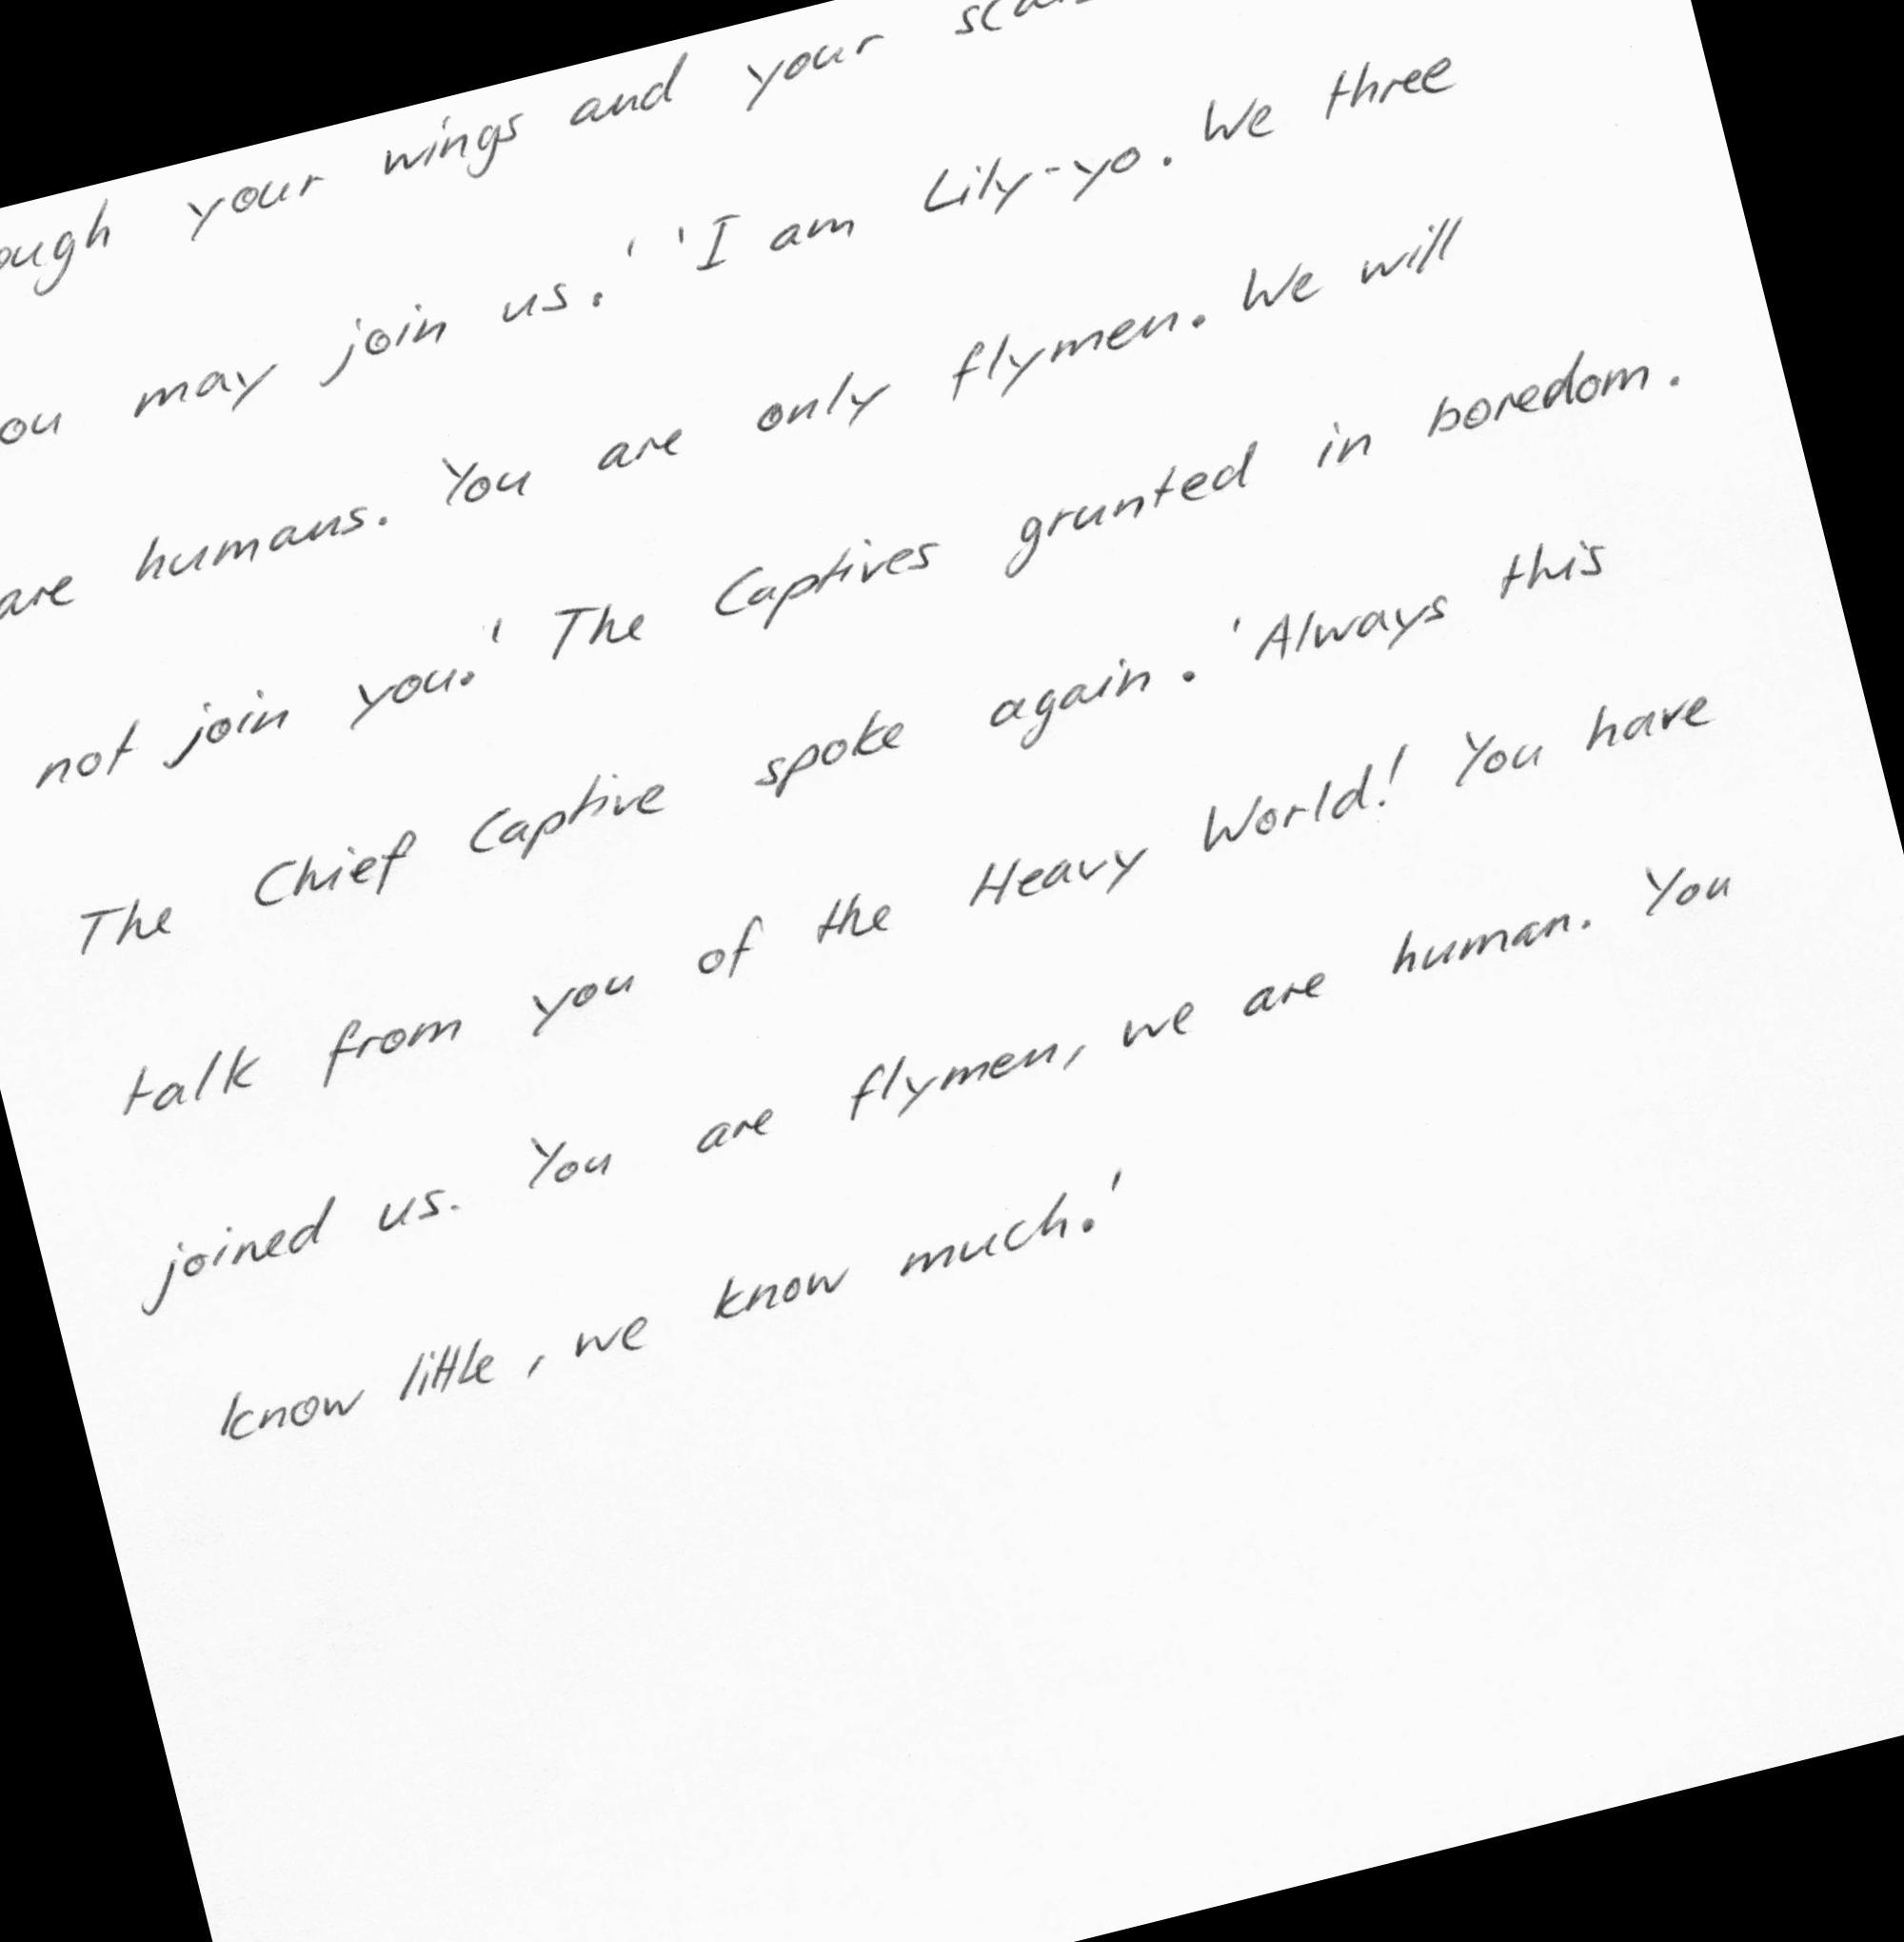 your wings and your
may join us.' 'I am Lily-yo. We three
are humans. You are only flymen. We will
not join you.' The Captives grunted in boredom.
The Chief Captive spoke again. 'Always this
talk from you of the Heavy World! You have
joined us. You are flymen, we are human. You
know little, we know much.'